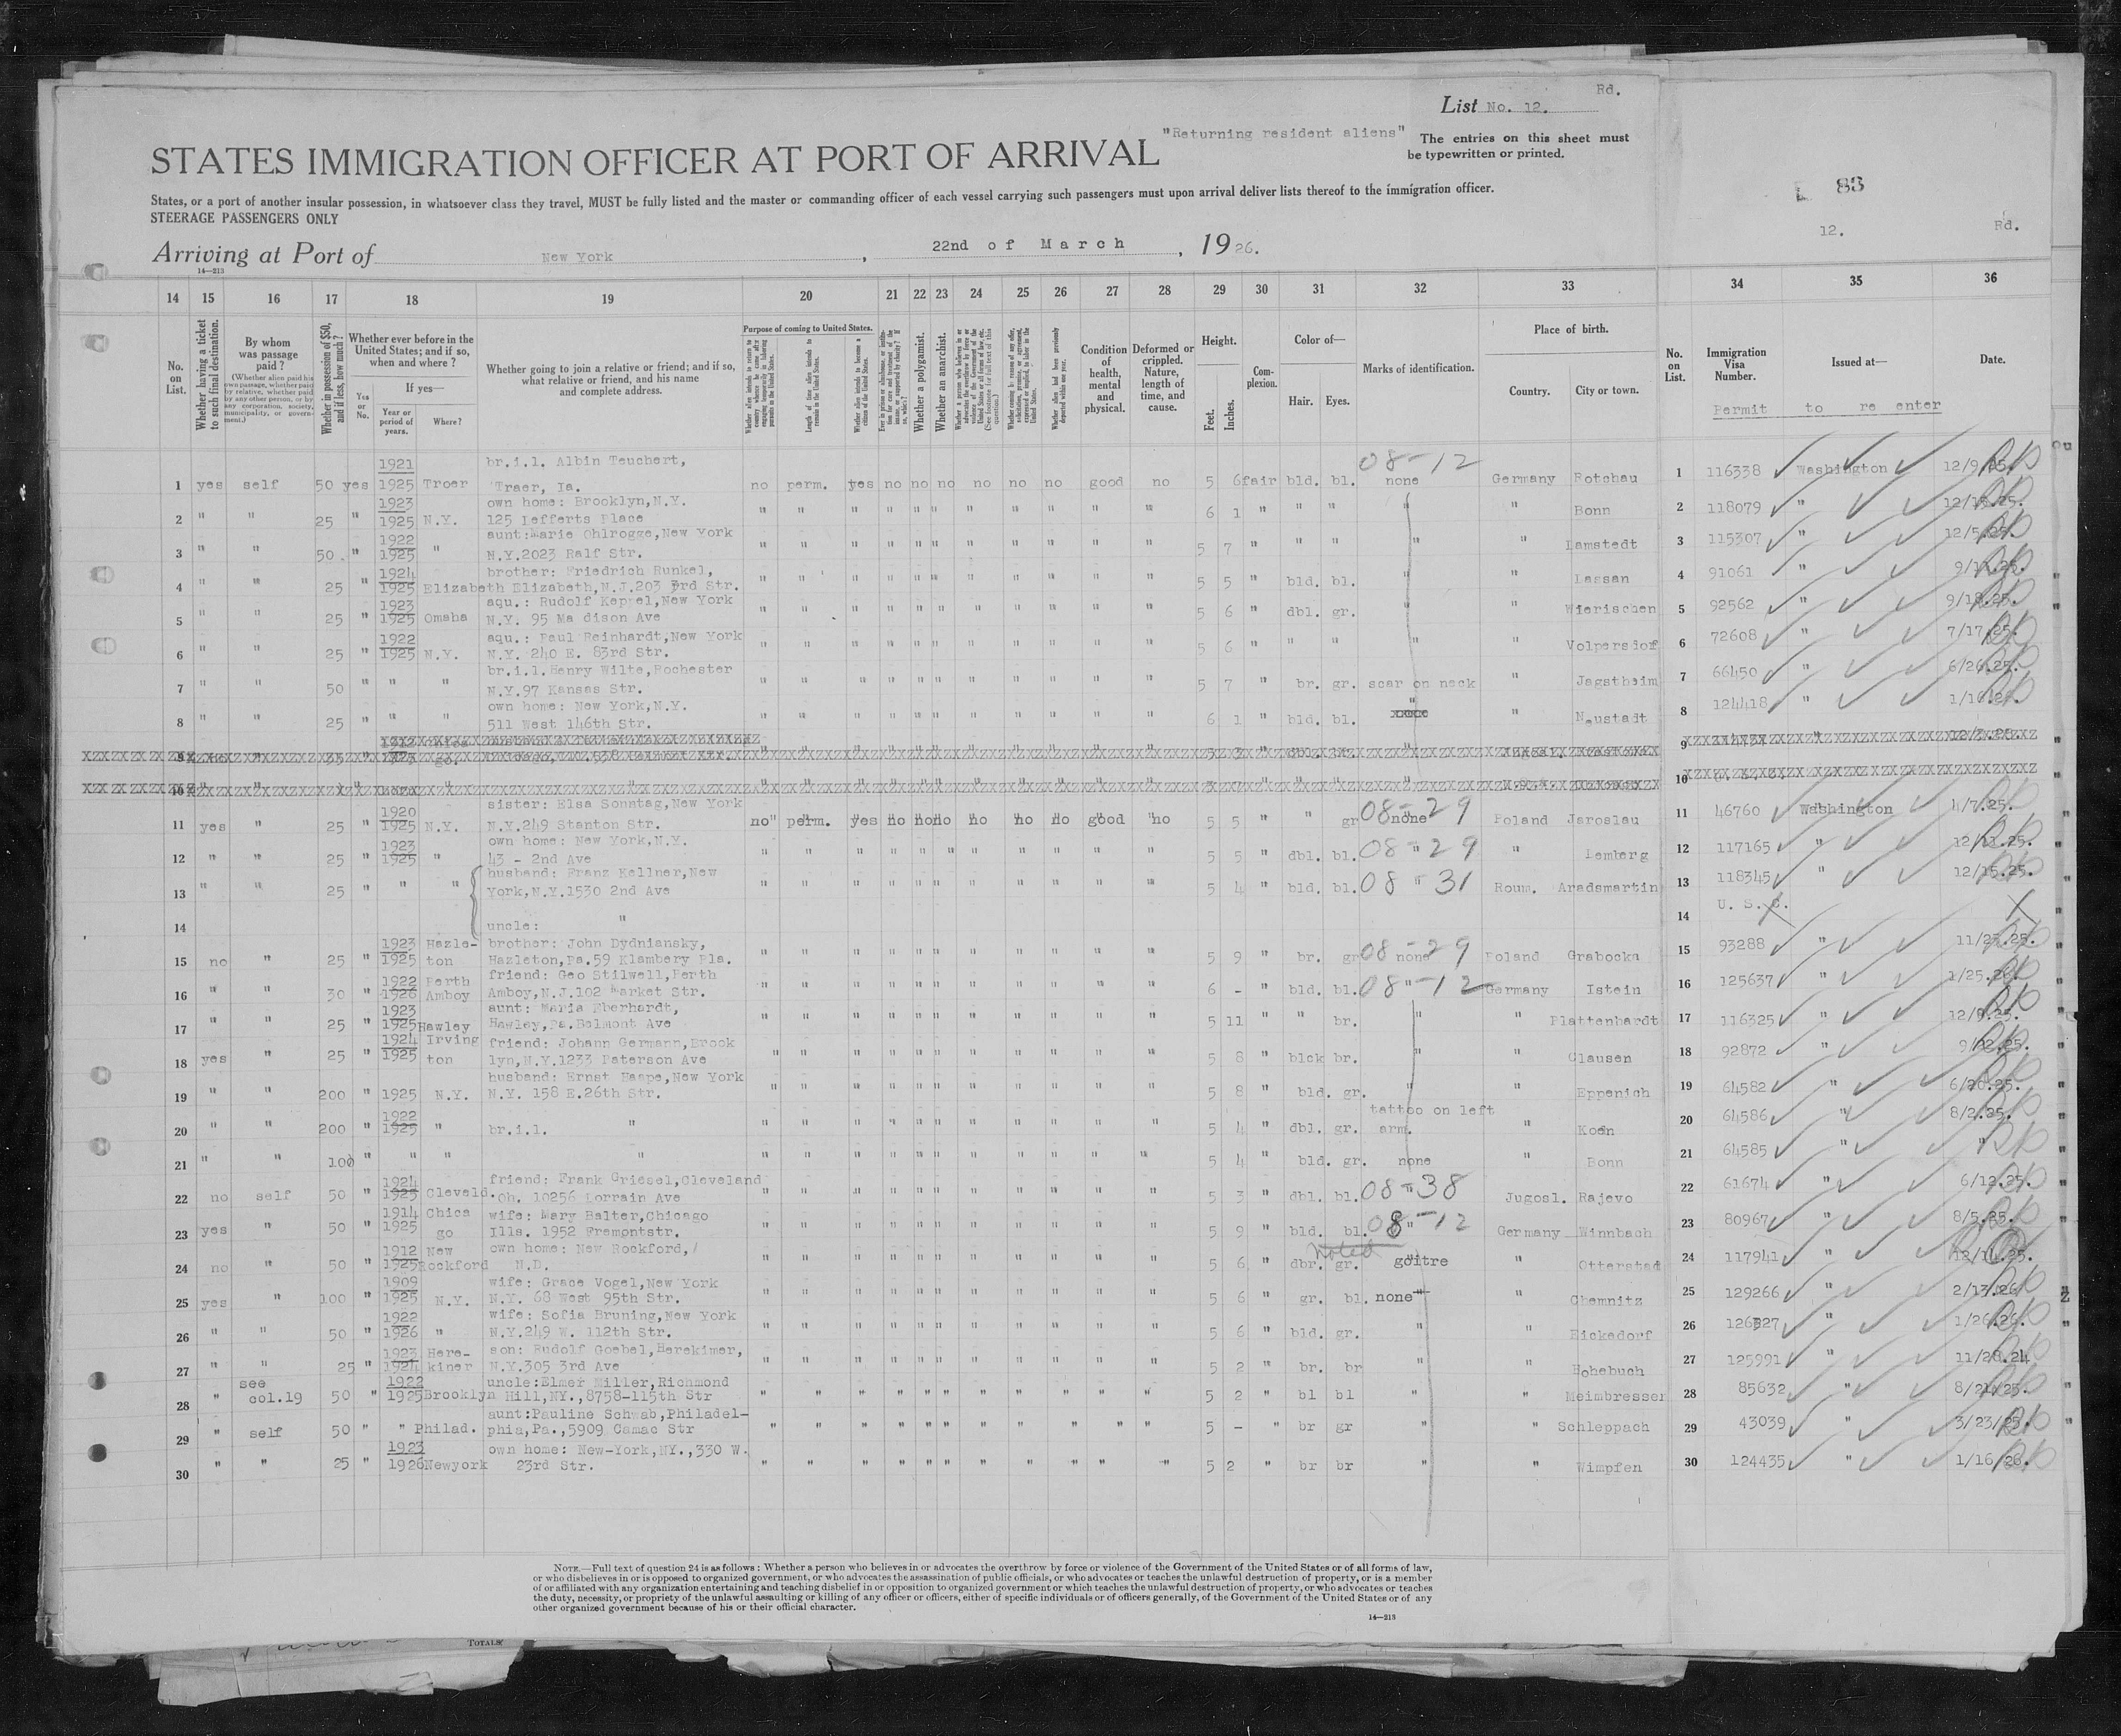 Rd.
List No. 12.
"Returning resident aliens"
The entries on this sheet must
be typewritten or printed.
STATES IMMIGRATION OFFICER AT PORT OF ARRIVAL
States, or a port of another insular possession, in whatsoever class they travel, MUST be fully listed and the master or commanding officer of each vessel carrying such passengers must upon arrival deliver lists thereof to the immigration officer.
STEERAGE PASSENGERS ONLY
83
12. Rd.
Arriving at Port of New York, 22nd of March, 1926.
14—213
14 15 16 17 18 19 20 21 22 23 24 25 26 27 28 29 30 31 32 33 34 35 36
No. on List.
Whether having a ticket to such final destination.
By whom was passage paid?
(Whether alien paid his own passage, whether paid by relative, whether paid by any other person, or by any corporation, society, municipality, or government.)
Whether in possession of $50, and if less, how much?
Whether ever before in the United States; and if so, when and where?
Yes or No.
If yes—
Year or period of years.
Where?
Whether going to join a relative or friend; and if so, what relative or friend, and his name and complete address.
Purpose of coming to United States.
Length of time alien intends to remain in the United States.
Whether alien intends to become a citizen of the United States.
Whether a polygamist.
Whether an anarchist.
Condition of health, mental and physical.
Deformed or crippled. Nature, length of time, and cause.
Height.
Feet. Inches.
Complexion.
Color of—
Hair. Eyes.
Marks of identification.
Place of birth.
Country. City or town.
No. on List.
Immigration Visa Number.
Issued at—
Date.
Permit to re enter
1 yes self 50 yes 1921 1925 Troer br.i.l. Albin Teuchert, Traer, Ia. no perm. yes no no no no no no good no 5 6 fair bld. bl. 08-12 none Germany Rotchau 1 116338 Washington 12/9/25.
2 " " 25 " 1923 1925 N.Y. own home: Brooklyn,N.Y. 125 Lefferts Place " " " " " " " " " " " 6 1 " " " " " Bonn 2 118079 "
3 " " 50. " 1922 1925 " aunt:Marie Ohlrogge,New York N.Y.2023 Ralf Str. " " " " " " " " " " " 5 7 " " " " " Lamstedt 3 115307 " 12/5.25.
4 " " 25 " 1924 1925 Elizabeth brother: Friedrich Runkel, Elizabeth,N.J.203 3rd Str. " " " " " " " " " " " 5 5 " bld. bl. " " Lassan 4 91061 "
5 " " 25 " 1923 1925 Omaha aqu.: Rudolf Keppel,New York N.Y. 95 Ma dison Ave " " " " " " " " " " " 5 6 " dbl. gr. " " Wierischen 5 92562 " 9/18.25.
6 " " 25 " 1922 1925 N.Y. aqu.: Paul Reinhardt,New York N.Y. 240 E. 83rd Str. " " " " " " " " " " " 5 6 " " " " " Volpersdorf 6 72608 " 7/17.25.
7 " " 50 " " " br.i.l.Henry Wilte,Rochester N.Y.97 Kansas Str. " " " " " " " " " " " 5 7 " br. gr. scar on neck " Jagstheim 7 66450 " 6/26.25.
8 " " 25 " " " own home: New York,N.Y. 511 West 146th Str. " " " " " " " " " " " 6 1 " bld. bl. " " Neustadt 8 124418 "
9
10
11 yes " 25 " 1920 1925 N.Y. sister: Elsa Sonntag,New York N.Y.249 Stanton Str. no perm. yes no no no no no no good no 5 5 " " gr 08-29 none Poland Jaroslau 11 46760 Washington 4/7.25.
12 " " 25 " 1923 1925 " own home: New York,N.Y. 43 - 2nd Ave " " " " " " " " " " " 5 5 " dbl. bl. 08-29 " " Lemberg 12 117165 " 12/11.25.
13 " " 25 " " " husband: Franz Kellner,New York,N.Y.1530 2nd Ave " " " " " " " " " " " 5 4 " bld. bl. 08-31 " Roum. Aradsmartin 13 118345 " 12/15.25.
14 uncle: " 14 U. S. C. X
15 no " 25 " 1923 1925 Hazle-ton brother: John Dydniansky, Hazleton,Pa.59 Klambery Pla. " " " " " " " " " " " 5 9 " br. gr 08-29 none Poland Grabocka 15 93288 " 11/23.25.
16 " " 30 " 1922 1926 Perth Amboy friend: Geo Stilwell,Perth Amboy,N.J.102 Market Str. " " " " " " " " " " " 6 - " bld. bl. 08-12 " Germany Istein 16 125637 " 1/25.26.
17 " " 25 " 1923 1925 Hawley aunt: Maria Eberhardt, Hawley,Pa.Belmont Ave " " " " " " " " " " " 5 11 " " br. " " Plattenhardt 17 116325 " 12/9.25.
18 yes " 25 " 1924 1925 Irving ton friend: Johann Germann,Brook lyn,N.Y.1233 Paterson Ave " " " " " " " " " " " 5 8 " blck br. " " Clausen 18 92872 " 9/22.25.
19 " " 200 " 1925 N.Y. husband: Ernst Haspe,New York N.Y. 158 E.26th Str. " " " " " " " " " " " 5 8 " bld. gr. " " Eppenich 19 64582 " 6/20.25.
20 " " 200 " 1922 1925 " br.i.l. " " " " " " " " " " " " 5 4 " dbl. gr. tattoo on left arm. " Koeln 20 64586 " 8/2.25.
21 " " 100 " " " " " " " " " " " " " " " 5 4 " bld. gr. none " Bonn 21 64585 " "
22 no self 50 " 1924 1925 Cleveld. friend: Frank Griesel,Cleveland Oh. 10256 Lorrain Ave " " " " " " " " " " " 5 3 " dbl. bl. 08-38 " Jugosl. Rajevo 22 61674 " 6/12.25.
23 yes " 50 " 1914 1925 Chica go wife: Mary Balter,Chicago Ills. 1952 Fremontstr. " " " " " " " " " " " 5 9 " bld. bl. 08-12 " Germany Winnbach 23 80967 " 8/5.25.
24 no " 50 " 1912 1925 New Rockford own home: New Rockford, N.D. " " " " " " " " " " " 5 6 " dbr. gr. Noted goitre " Otterstad 24 117941 " 12/14.25.
25 yes " 100 " 1909 1925 N.Y. wife: Grace Vogel,New York N.Y. 68 West 95th Str. " " " " " " " " " " " 5 6 " gr. bl. none " Chemnitz 25 129266 " 2/13.26.
26 " " 50 " 1922 1926 " wife: Sofia Bruning,New York N.Y.249 W. 112th Str. " " " " " " " " " " " 5 6 " bld. gr. " " Eickedorf 26 " 1/26.26.
27 " " 25 " 1923 1924 Here-kiner son: Rudolf Goebel,Herekimer, N.Y.305 3rd Ave " " " " " " " " " " " 5 2 " br. br " " Hohebuch 27 125991 " 11/28.24
28 " see col.19 50 " 1922 1925 Brooklyn uncle:Elmer Miller,Richmond Hill,NY.,8758-115th Str " " " " " " " " " " " 5 2 " bl bl " " Meimbresser 28 85632 "
29 " self 50 " " Philad. aunt:Pauline Schwab,Philadel-phia,Pa.,5909 Camac Str " " " " " " " " " " " 5 - " br gr " " Schleppach 29 43039 " 3/23/25.
30 " " 25 " 1923 1926 Newyork own home: New-York,NY.,330 W. 23rd Str. " " " " " " " " " " " 5 2 " br br " " Wimpfen 30 124435 " 1/16/26.
NOTE.—Full text of question 24 is as follows: Whether a person who believes in or advocates the overthrow by force or violence of the Government of the United States or of all forms of law,
or who disbelieves in or is opposed to organized government, or who advocates the assassination of public officials, or who advocates or teaches the unlawful destruction of property, or is a member
of or affiliated with any organization entertaining and teaching disbelief in or opposition to organized government or which teaches the unlawful destruction of property, or who advocates or teaches
the duty, necessity, or propriety of the unlawful assaulting or killing of any officer or officers, either of specific individuals or of officers generally, of the Government of the United States or of any
other organized government because of his or their official character.
14—213
TOTALS